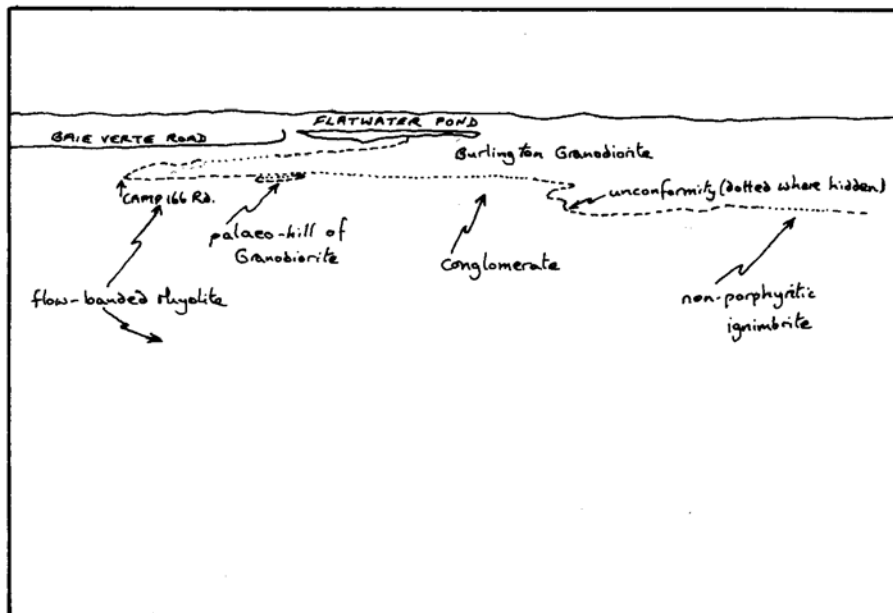 FLATWATER POND
BAIE VERTE ROAD
Burlington Granodiorite
CAMP 166 Rd.
unconformity (dotted where hidden)
palaeo-hill of
Granodiorite
Conglomerate
flow-banded rhyolite
non-porphyritic
ignimbrite